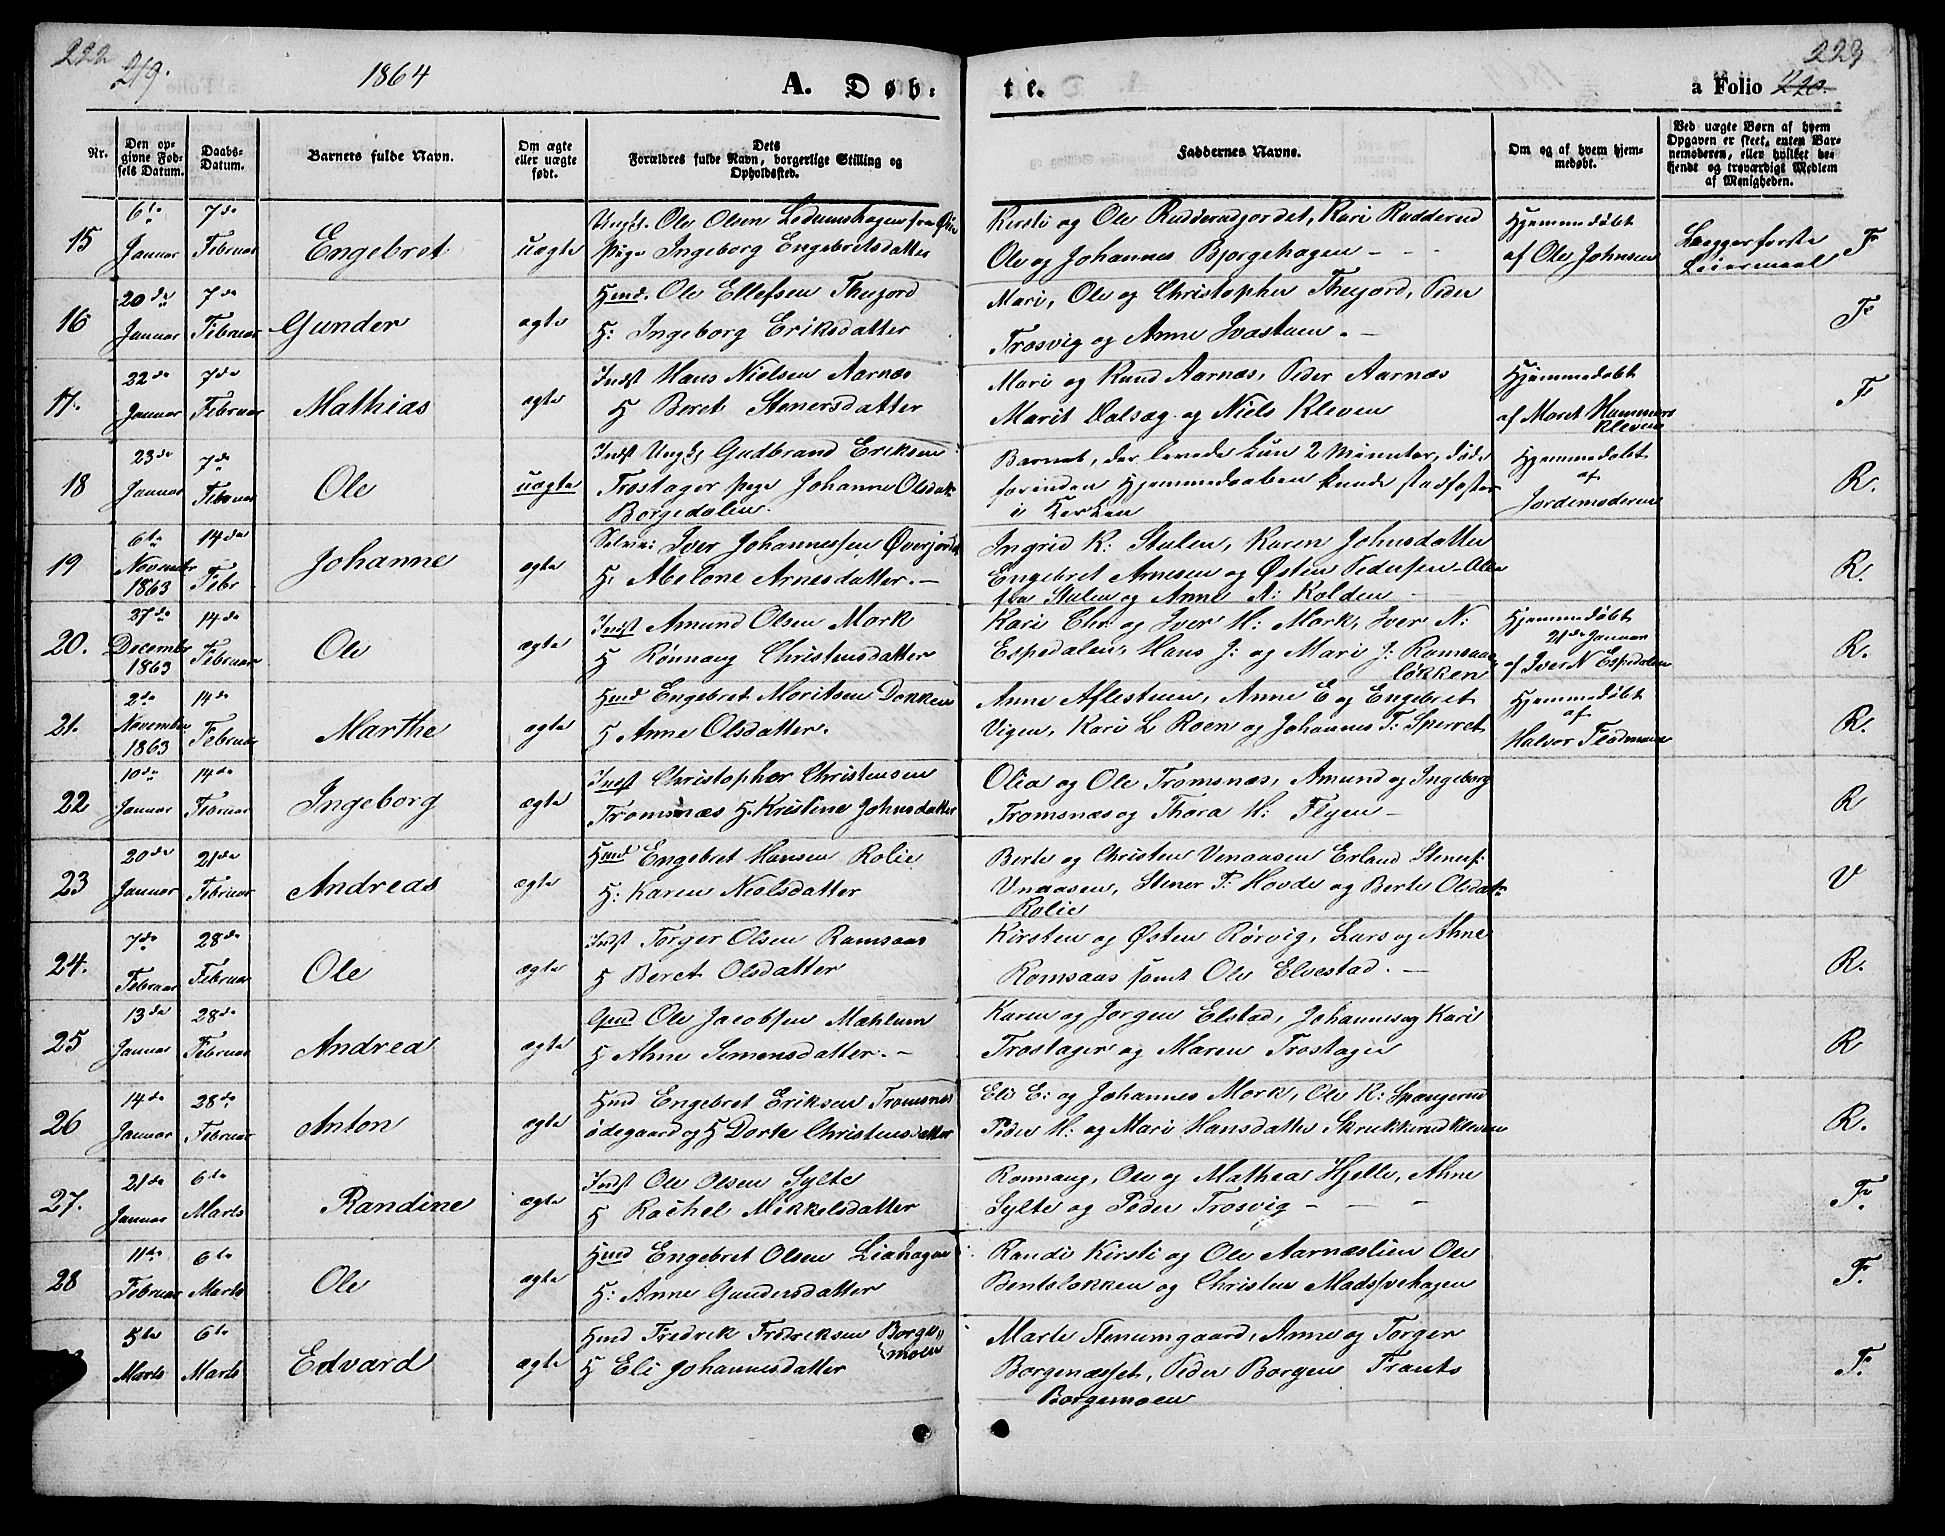 222
219.
1864
A. Døb=
te.
a Folio 220.
223
Nr.
Den op-
givne Fød-
sels Datum.
Daabs-
Datum.
Barnets fulde Navn.
Om ægte
eller uægte
født.
Dets
Forældres fulde Navn, borgerlige Stilling og
Opholdssted.
Faddernes Navne.
Om og af hvem hjem-
medøbt.
Ved uægte Børn af hvem
Opgaven er skeet, enten Bar-
nemoderen, eller hvilket be-
kendt og troværdigt Medlem
af Menigheden.
15
6te
Januar
7de
Februar
Engebret
uægte
Ungk. Ole Olsen fra
Pige Ingeborg Engebretsdatter
Kirsti og Ole Rudderudjordet, Kari Rudderud
Ole og Johannes Bjorgehagen - -
Hjemmedøbt
af Ole Johnsen
Begges første
Leiermaal
F
16
20de
Januar
7de
Februar
Gunder
ægte
Hmd. Ole Ellefsen Thujord
H: Ingeborg Eriksdatter
Mari, Ole og Christopher Thujord, Peder
Trosvig og Anne -
F
17.
22de
Januar
7de
Februar
Mathias
ægte
Indst Hans Nielsen Aarnæs
H Beret Stenersdatter
Mari og Knud Aarnæs, Peder Aarnæs
Marit Dalsæg og Niels Kleven
Hjemmedøbt
af Maret
Kleven
F
18
23de
Januar
7de
Februar
Ole
uægte
Indst Ungk Gudbrand Eriksen
Trostager Pige Johanne Olsdatr
Borgedalen.
Barnet, der levede kun 2 Minuter, døde
forinden Hjemmedaaben kunde stadfæstes
i Kirken
Hjemmedøbt
af
Jordemoderen
R.
19
6te
November
1863
14de
Febr
Johanne
ægte
Selvei Iver Johannessen Øverjordet
H, Abelone Arnesdatter. -
Ingrid K: Stulen, Karen Johnsdatter
Engebret Arnesen og Østen Pedersen
fra Stulen og Anne A: Kolden -
R.
20.
27de
December
1863
14de
Februar
Ole
ægte
Indst Amund Olsen Mork
H Rønnaug Christensdatter
Kari Chr og Iver H: Mork, Iver N:
Espedalen, Hans J: og Mari J: Romsaas
løkken
Hjemmedøbt
21de Januar
af Iver N Espedalen
R.
21.
2de
November
1863
14de
Februar
Marthe
ægte
Hmd Engebret Moritsen Dokken
H Anne Olsdatter.
Anne Aflestuen, Anne E og Engebret
Vigen, Kari L Roen og Johannes T: Sperret
Hjemmedøbt
af
Halvor
R.
22
10de
Januar
14de
Februar
Ingeborg
ægte
Indst Christopher Christensen
Tromsnæs H. Kristine Johnsdatter
Olia og Ole Tromsnæs, Amund og Ingeborg
Tromsnæs og Thora H: Flyen -
R
23
20de
Januar
21de
Februar
Andreas
ægte
Hmd Engebret Hansen Rolie
H: Karen Nielsdatter
Berte og Christen Venaasen Erland Stens:
Vnaasen, Stener P: Hovde og Berte Olsdatr
Rolie
V
24.
7de
Februar
28de
Februar
Ole
ægte
Indst Torger Olsen Romsaas
H Beret Olsdatter
Kirsten og Østen Rörvig, Lars og Ahne
Romsaas samt Ole Elvestad. -
R.
25
13de
Januar
28de
Februar
Andrea
ægte
Gmd Ole Jacobsen Mæhlum
H Ahne Simensdatter. -
Karen og Jørgen Elstad, Johannes og Kari
Trostager og Maren Trostager
R
26
14de
Januar
28de
Februar
Anton
ægte
Hmd Engebret Eriksen Tromsnæs
ødegaard og H Dorte Christensdatter
Eli E: og Johannes Mork, Ole K: Spangrud
Peder H: og Mari Hansdatter Skrukkerudkleven
R.
27.
21de
Januar
6te
Marts
Randine
ægte
Indst Ole Olsen Sylte
H Rachel Mikkelsdatter
Rønnaug, Ole og Mathea Hjelle, Ahne
Sylte og Peder Trosvig - - -
F.
28
11te
Februar
6te
Marts
Ole
ægte
Hmd Engebret Olsen Liahagen
H: Anne Gundersdatter
Randi Kirsti og Ole Aarnæslien Ole
Bentsløkken og Christen Madssvehagen
F.
5te
Marts
6te
Marts
Edvard
ægte
Hmd Fredrik Fredriksen Borge
moen
H Eli Johannesdatter
Marte Stenumgaard, Anne og Torger
Borgenæsset, Peder Borgen Frants
Borgemoen
F.